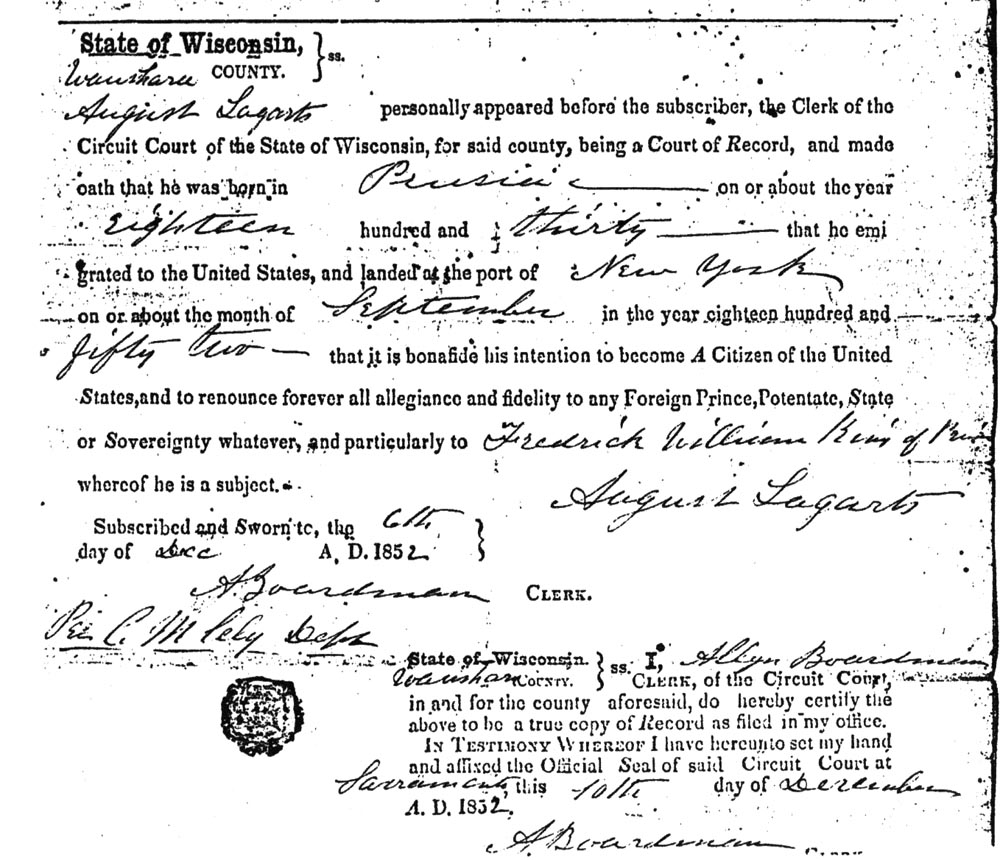 State of Wisconsin, } ss.
Waushara COUNTY.
August Lagarts personally appeared before the subscriber, the Clerk of the
Circuit Court of the State of Wisconsin, for said county, being a Court of Record, and made
oath that he was born in Prusia on or about the year
Eighteen hundred and thirty that he emi
grated to the United States, and landed at the port of New York
on or about the month of September in the year eighteen hundred and
fifty two that it is bonafide his intention to become A Citizen of the United
States, and to renounce forever all allegiance and fidelity to any Foreign Prince, Potentate, State
or Sovereignty whatever, and particularly to Fredrick William King of
whereof he is a subject.
August Lagarts
Subscribed and Sworn to, the 6th
day of Dec A. D. 1852 }
A. Boardman CLERK.
Per C. M Dept
State of Wisconsin. } ss. I, Allyn Boardman
Waushara COUNTY. CLERK, of the Circuit Court,
in and for the county aforesaid, do hereby certify the
above to be a true copy of Record as filed in my office.
IN TESTIMONY WHEREOF I have hereunto set my hand
and affixed the Official Seal of said Circuit Court at
Sacramento, this 10th day of December
A. D. 1852.
A. Boardman Clerk